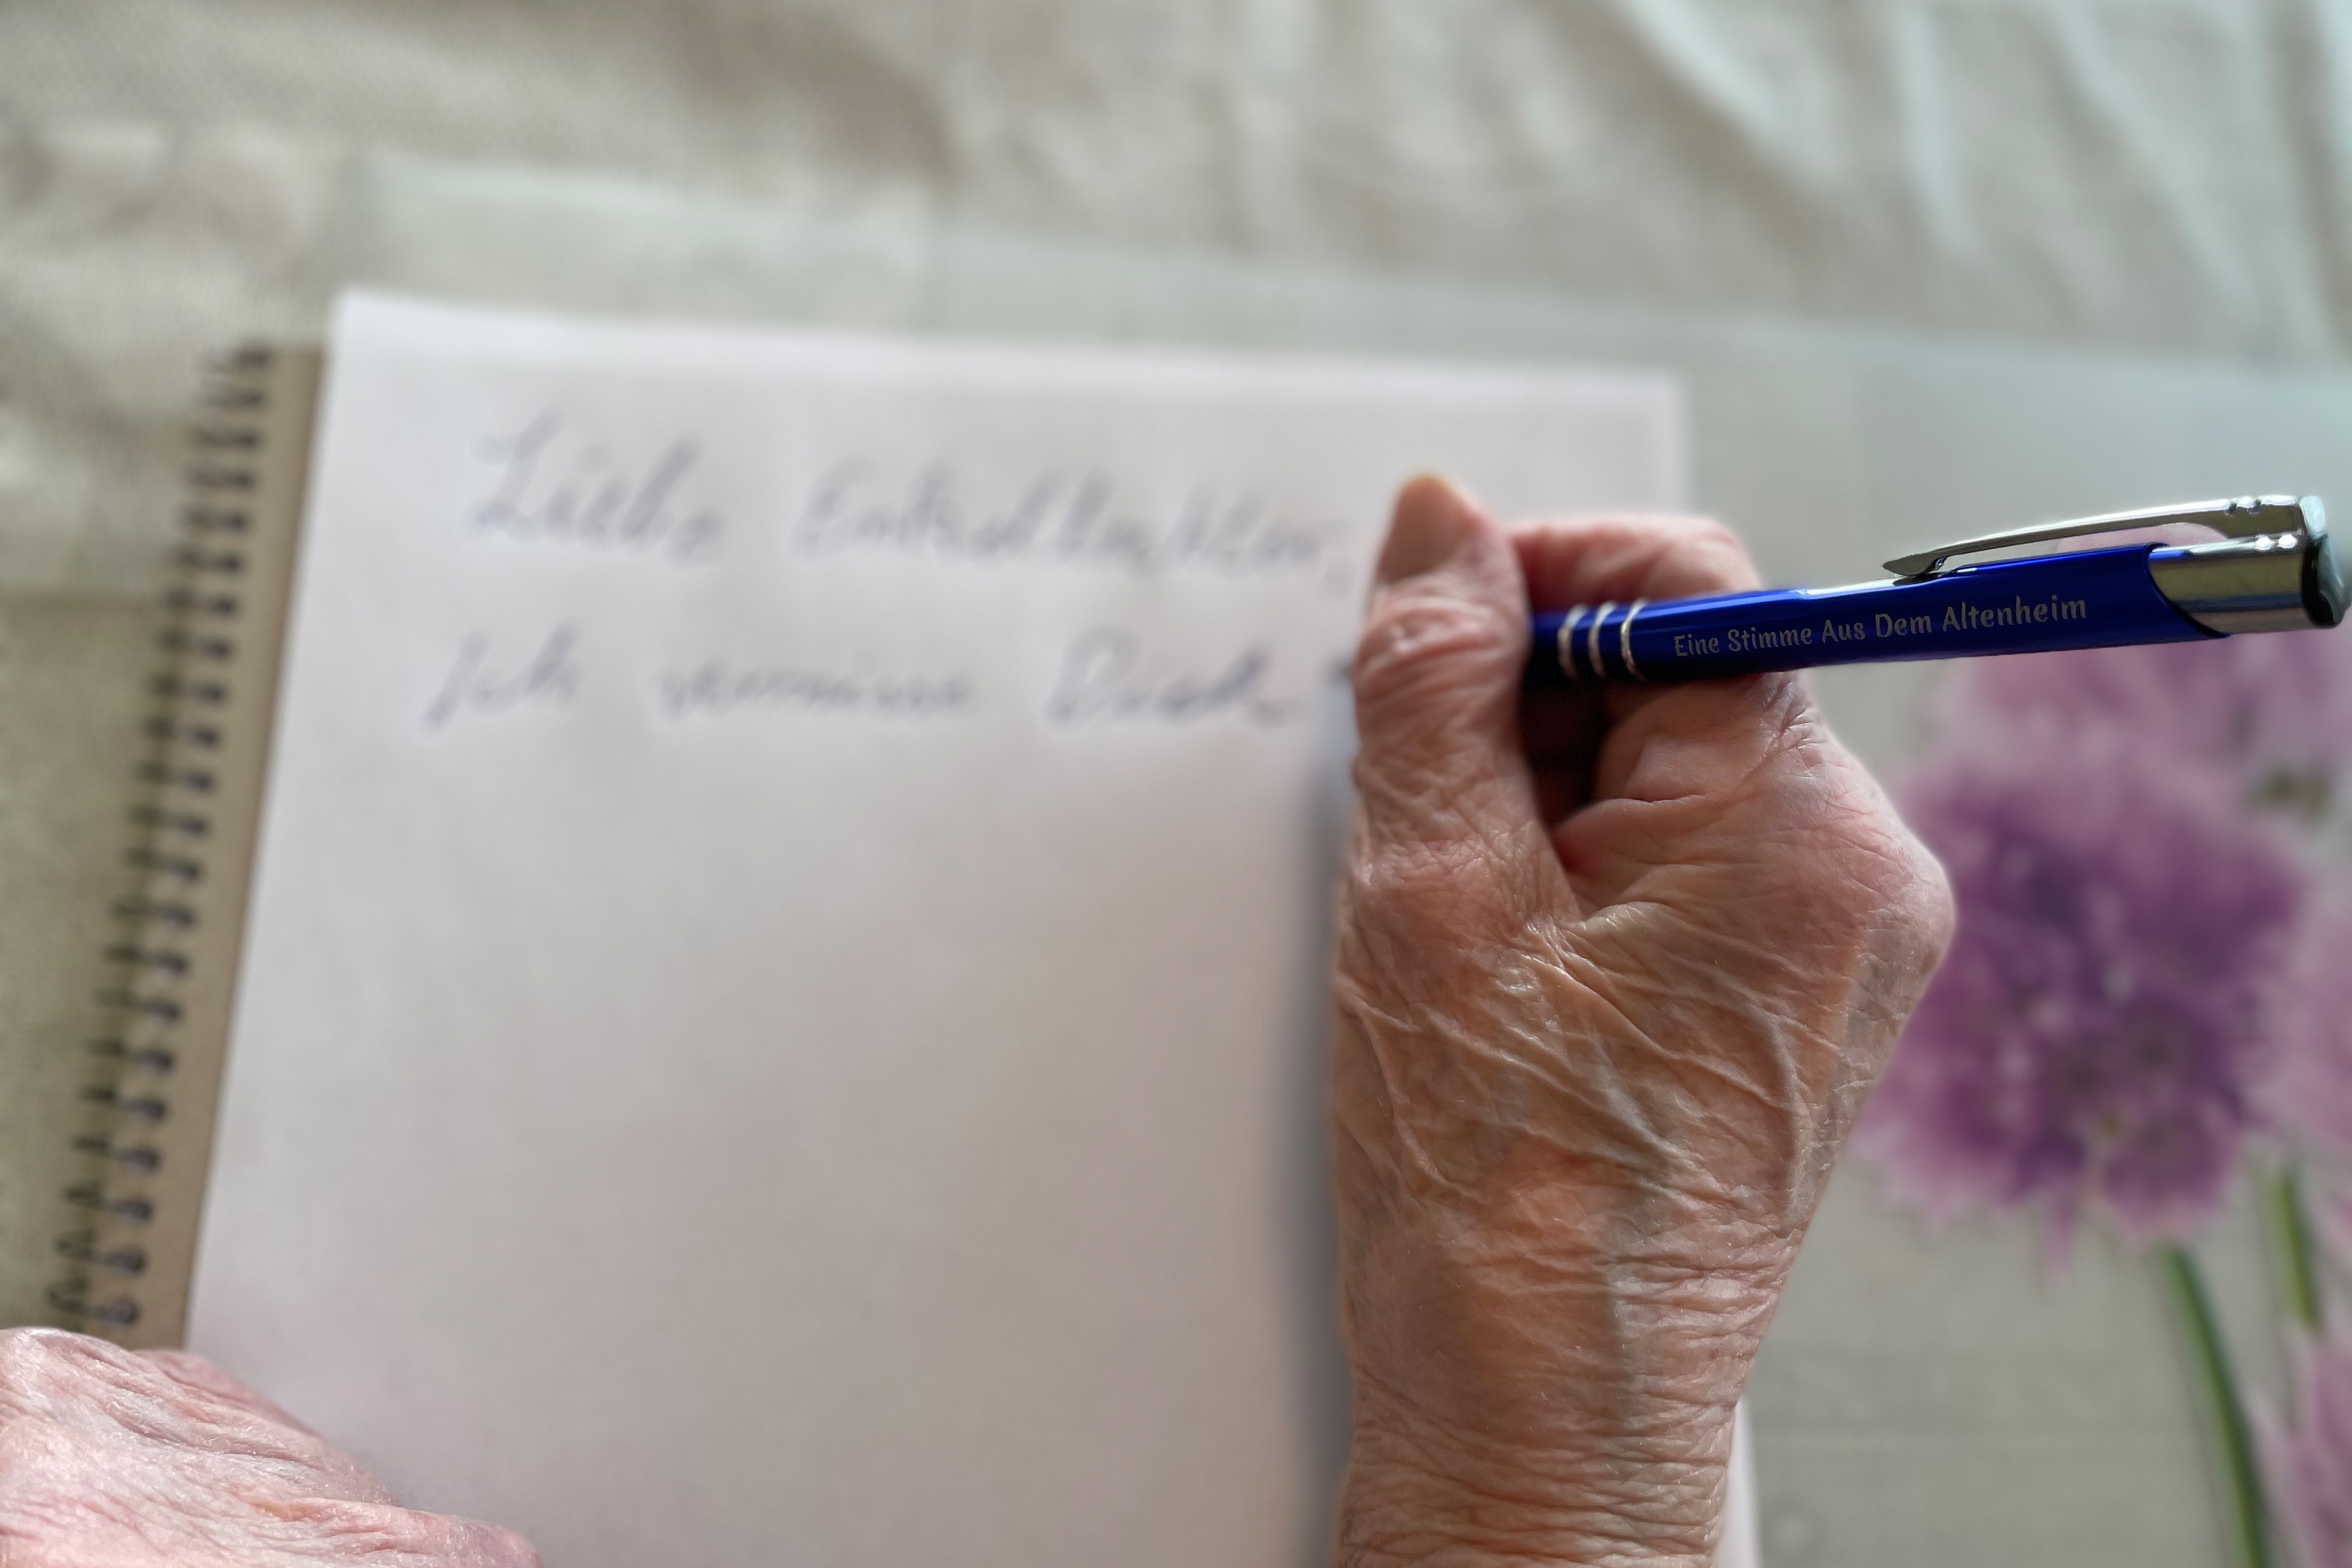 Liebe Enkeltochter,
Ich vermisse Dich
Eine Stimme Aus Dem Altenheim